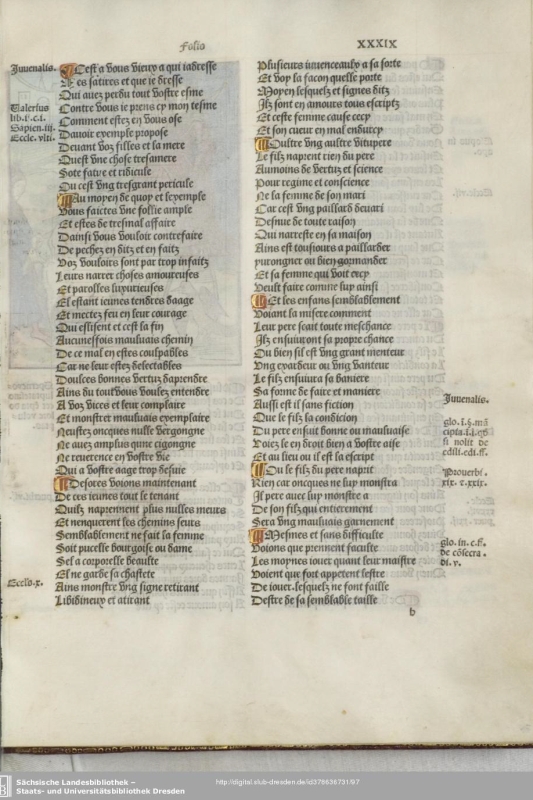 Folio
XXXIX
Juvenalis.
Valerius
lib. i. c. i.
Sapien. iii.
Eccle. vlti.
Eccls. x.
Cest a vous vieux a qui iadresse
Mes satires et que ie dresse
Qui avez perdu tout vostre esme
Contre vous ie prens cy mon tesme
Comment estez en vous ose
Davoir exemple propose
Devant voz filles et la mere
Quest vne chose tresamere
Sote fatve et ridicule
Ou cest vng tresgrant pericule
Au moyen de quoy et lexemple
Vous faictes vne follie ample
Et estes de tresmal affaire
Dainsi vous vouloir contrefaire
De pechez en ditz et en faitz
Voz vouloirs sont par trop infaitz
Leurs narrer choses amoureuses
Et parolles luxurieuses
El estant ieunes tendres daage
Et mectez feu en leur courage
Qui eslisent et cest la fin
Aucuneffois mauluais chemin
De ce mal en estes coulpables
Car ne leur estez delectables
Doulces bonnes vertuz daprendre
Ains du tout vous voulez entendre
A voz vices et leur complaire
Et monstrer mauluais exemplaire
Neustez oncques nulle vergongne
Ne avez amplius qune cigongne
Ne reverence en vostre vie
Qui a vostre aage trop desvie
Desores voions maintenant
De ces ieunes tout le tenant
Quilz naprennent plus nulles meurs
Et nenquerent les chemins seurs
Semblablement ne fait la femme
Soit pucelle bourgoise ou dame
Sel a corporelle beaulte
El ne garde sa chastete
Ains monstre vng signe retirant
Libidineux et atirant
Plusieurs iuvenceaulx a sa sorte
Et voy la facon quelle porte
Moyen lesquelz et signes ditz
Ilz sont en amours tous escriptz
Et ceste femme cause cecy
Et son cueur en mal endurcy
Oultre vng aultre vitupere
Le filz naprent rien du pere
Aumoins de vertuz et science
Pour regime et conscience
Ne la femme de son mari
Car cest vng paillard devari
Desnue de toute raison
Qui narreste en sa maison
Ains est tousiours a paillarder
yvrongner ou bien gormander
Et sa femme qui voit cecy
Veult faire comme luy ainsi
Et les enfans semblablement
Voiant la misere comment
Leur pere scait toute meschance
Ilz ensuivront sa propre chance
Ou bien sil est vng grant menteur
Vng baveur ou vng vanteur
Le filz ensuivra sa baniere
Sa forme de faire et maniere
Aussi est il sans fiction
Que le filz la condicion
Du pere ensuit bonne ou mauluaise
Voiez le en droit bien a vostre aise
Et au lieu ou il est la escript
Ou le filz du pere naprit
Rien car oncques ne luy monstra
Il pere avec luy monstre a
De son filz qui entierement
Sera vng mauluais garnement
Mesmes et sans difficulte
Voions que prennent faculte
Les moynes iouer quant leur maistre
Voient que fort appetent lestre
De iouer. lesquelz ne font faille
Destre de sa semblable taille
b
Juvenalis.
si nolit de
edili. edi. ff.
Proverbi.
xix. et. xxix.
glo. in. c. ff.
de cõsecra.
di. v.
Sächsische Landesbibliothek –
Staats- und Universitätsbibliothek Dresden
http://digital.slub-dresden.de/id378636731/97